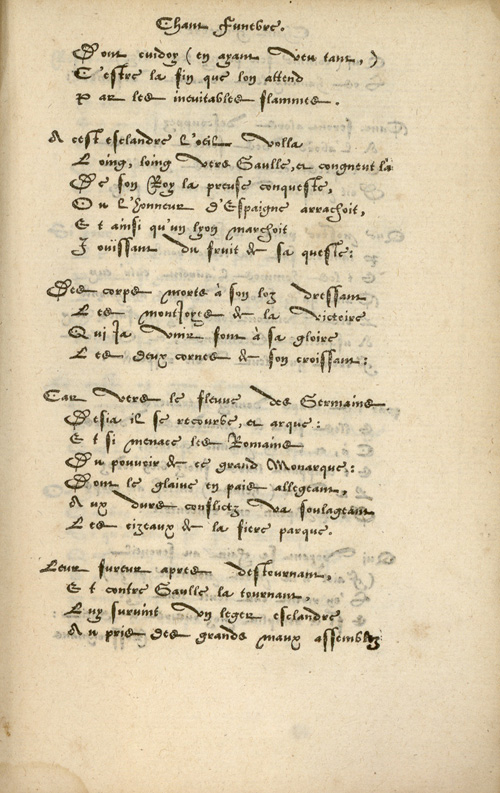 Chant Funebre.
Dont cuidoy (en ayant veu tant,)
C'estre la fin que lon attend
Par les ineuitables flammes.
A cest esclandre l'oeil volla
Loing, loing vers Gaulle, et congneut là
De son Roy la preuse conqueste,
Ou l'honneur d'Espaigne arrachoit,
Et ainsi qu'un lyon marchoit
Jouissant du fruit de sa queste:
Des corps morts à son loz dressant
Les montjoyes de la victoire
Qui ja vnir font à sa gloire
Les deux cornes de son croissant:
Car vers le fleuue des Germains
Desia il se recourbe, et arque:
Et si menace les Romains
Du pouuoir de ce grand Monarque:
Dont le glaiue en paix allegeant,
Aux durs conflictz va soulageant
Les cizeaux de la fiere parque.
Leur fureur apres destournant,
Et contre Gaulle la tournant,
Luy suruint vn leger esclandre
Au pris des grands maux assemblez